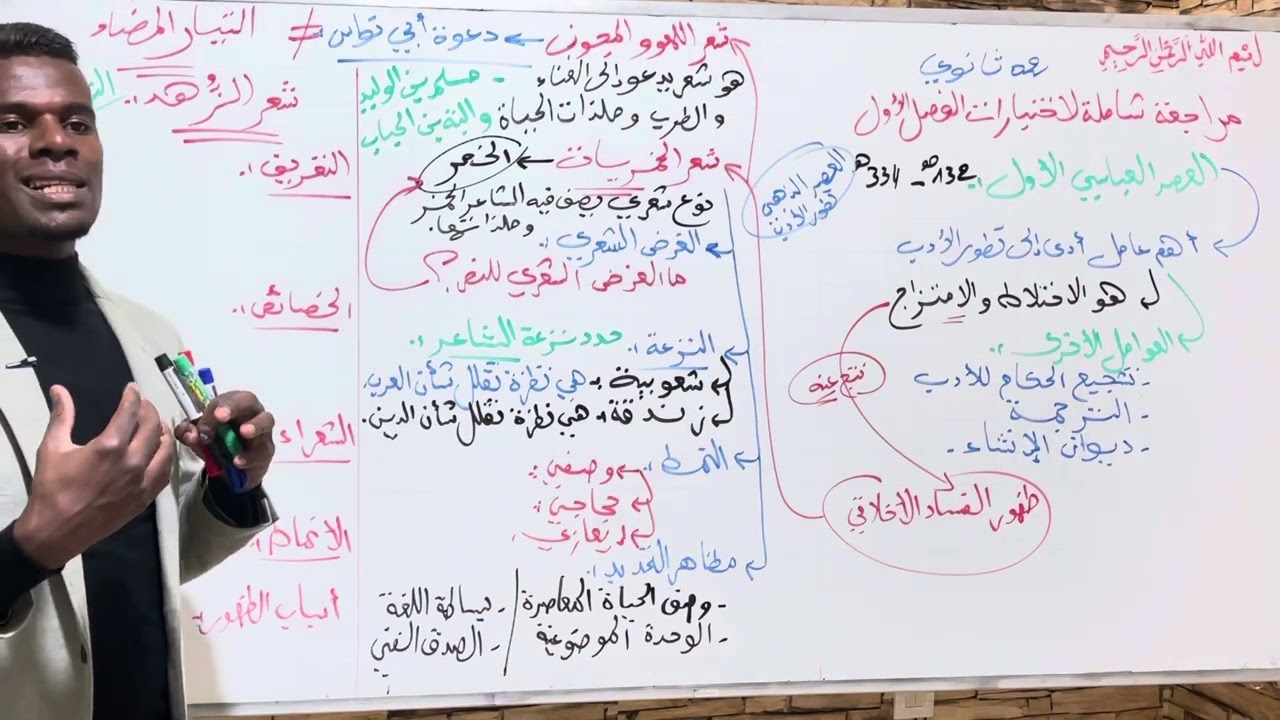 بسم الله الرحمن الرحيم
ثانوي
مراجعة شاملة لاختبارات الفصل الأول
العصر العباسي الأول: 132هـ - 334هـ
العصر الذهبي
تطور الأدب
أهم عامل أدى إلى تطور الأدب
هو الاختلاط والامتزاج
العوامل الأخرى:
- تشجيع الحكام للأدب
- الترجمة
- ديوان الإنشاء -
نتج عنه
ظهور الفساد الأخلاقي
شعر اللهو و المجون ← دعوة أبي نواس ≠ التيار المضاد
هو شعر يدعو إلى الغناء
و الطرب و ملذات الحياة
- مسلم بن الوليد
والبة بن الحباب
شعر الخمريات ← الخمر
نوع شعري يصف فيه الشاعر الخمر
و ملذاتها.
الغرض الشعري:
ما الغرض الشعري للنص؟
النزعة: حدد نزعة الشاعر:
شعوبية: هي نظرة تقلل شأن العرب.
زندقة: هي نظرة تقلل شأن الدين.
النمط:
وصفي:
حجاجي:
إيعازي:
مظاهر التجديد:
- وصف الحياة المعاصرة / - بساطة اللغة
- الوحدة الموضوعية / - الصدق الفني
شعر الزهد:
التعريف:
الخصائص:
الشعراء
الأنماط:
أسباب الظهور: